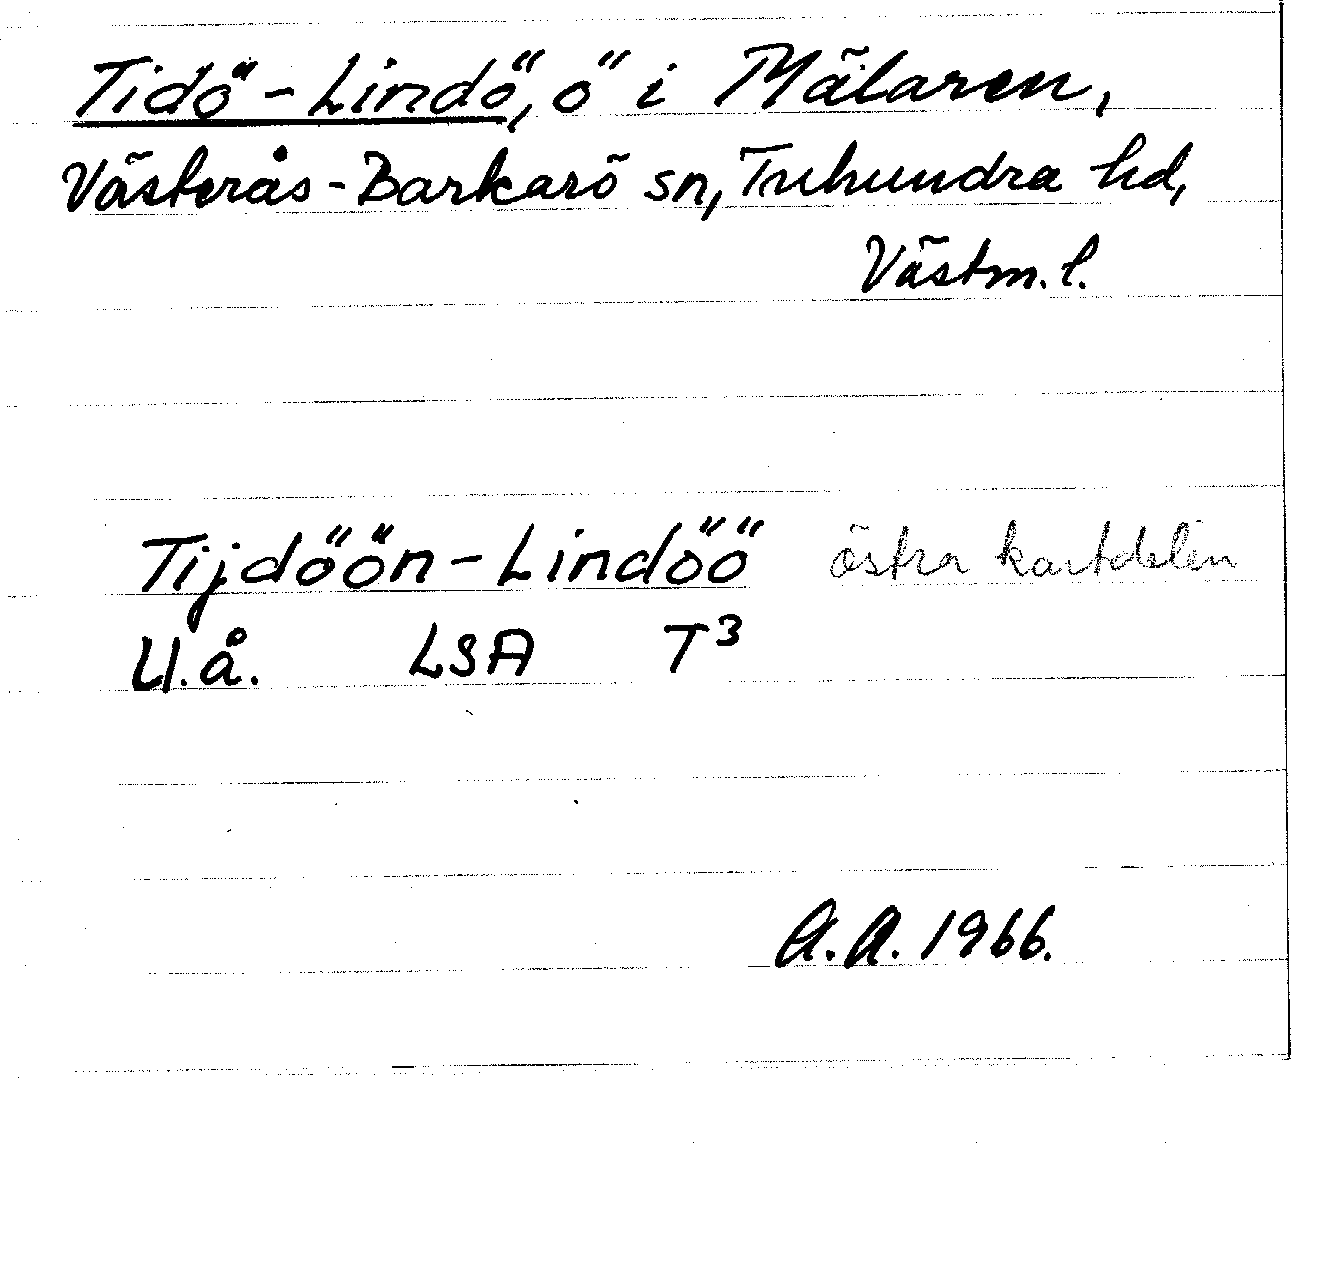 Tidö-Lindö, ö i Mälaren,
Västerås-Barkarö sn, Tuhundra hd,
Västm. l.
Tijdöön-Lindöö östra kartdelen
U.å. LSA T³
A.A. 1966.